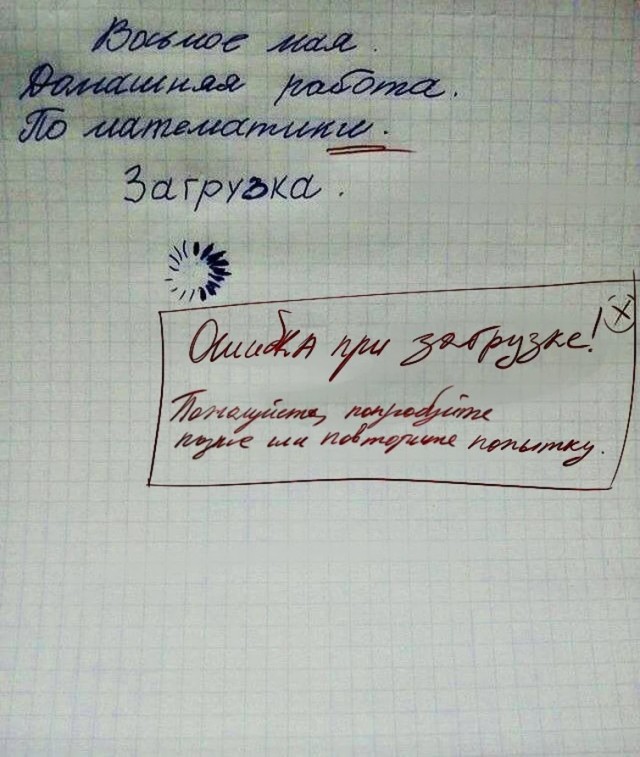 Восьмое мая.
Домашняя работа.
По математики.
Загрузка.
Ошибка при загрузке!
X
Пожалуйста, попробуйте
позже или повторите попытку.